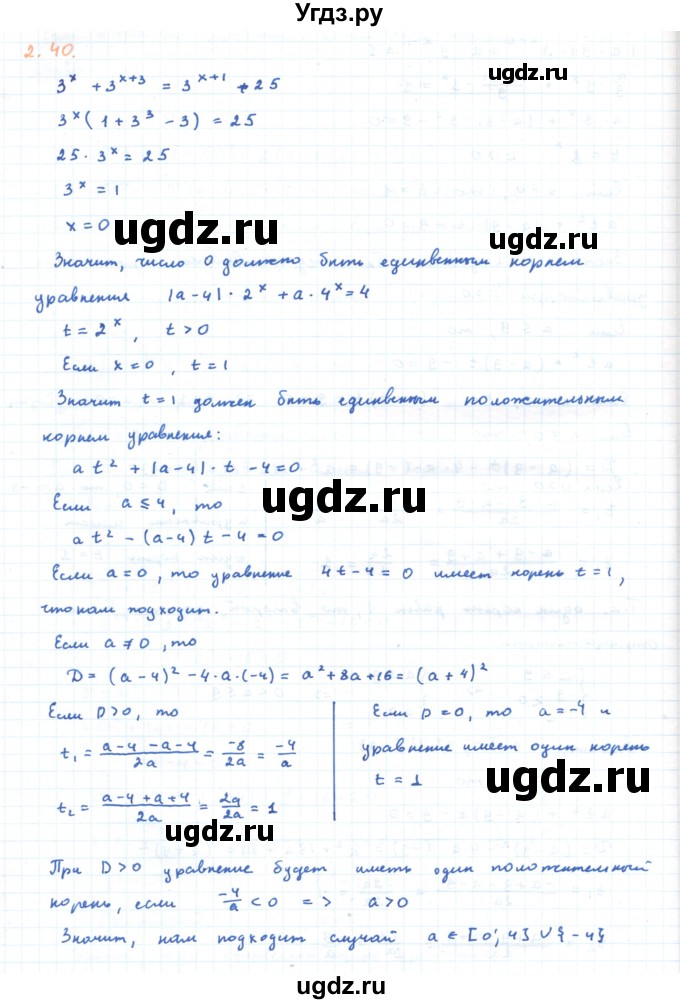 Угдз.ру
2.40.
ugdz.ru
3^x + 3^{x+3} = 3^{x+1} + 25
3^x (1 + 3^3 - 3) = 25
25 · 3^x = 25
3^x = 1
x = 0
ugdz.ru
ugdz.ru
Значит, число 0 должно быть единвенным корнем
уравнения |a-4| · 2^x + a · 4^x = 4
t = 2^x, t > 0
Если x = 0, t = 1
Значит t = 1 должен быть единвенным положительным
корнем уравнения:
a t^2 + |a-4| · t - 4 = 0
ugdz.ru
Если a ≤ 4, то
a t^2 - (a-4) t - 4 = 0
Если a = 0, то уравнение 4t - 4 = 0 имеет корень t = 1,
что нам подходит.
ugdz.ru
Если a ≠ 0, то
D = (a-4)^2 - 4 · a · (-4) = a^2 + 8a + 16 = (a+4)^2
Если D > 0, то
t_1 = \frac{a-4-a-4}{2a} = \frac{-8}{2a} = \frac{-4}{a}
t_2 = \frac{a-4+a+4}{2a} = \frac{2a}{2a} = 1
Если D = 0, то a = -4 и
уравнение имеет один корень
t = 1
ugdz.ru
ugdz.ru
При D > 0 уравнение будет иметь один положительный
корень, если \frac{-4}{a} < 0 => a > 0
Значит, нам подходит случай a ∈ [0; 4] ∪ {-4}
ugdz.ru
ugdz.ru